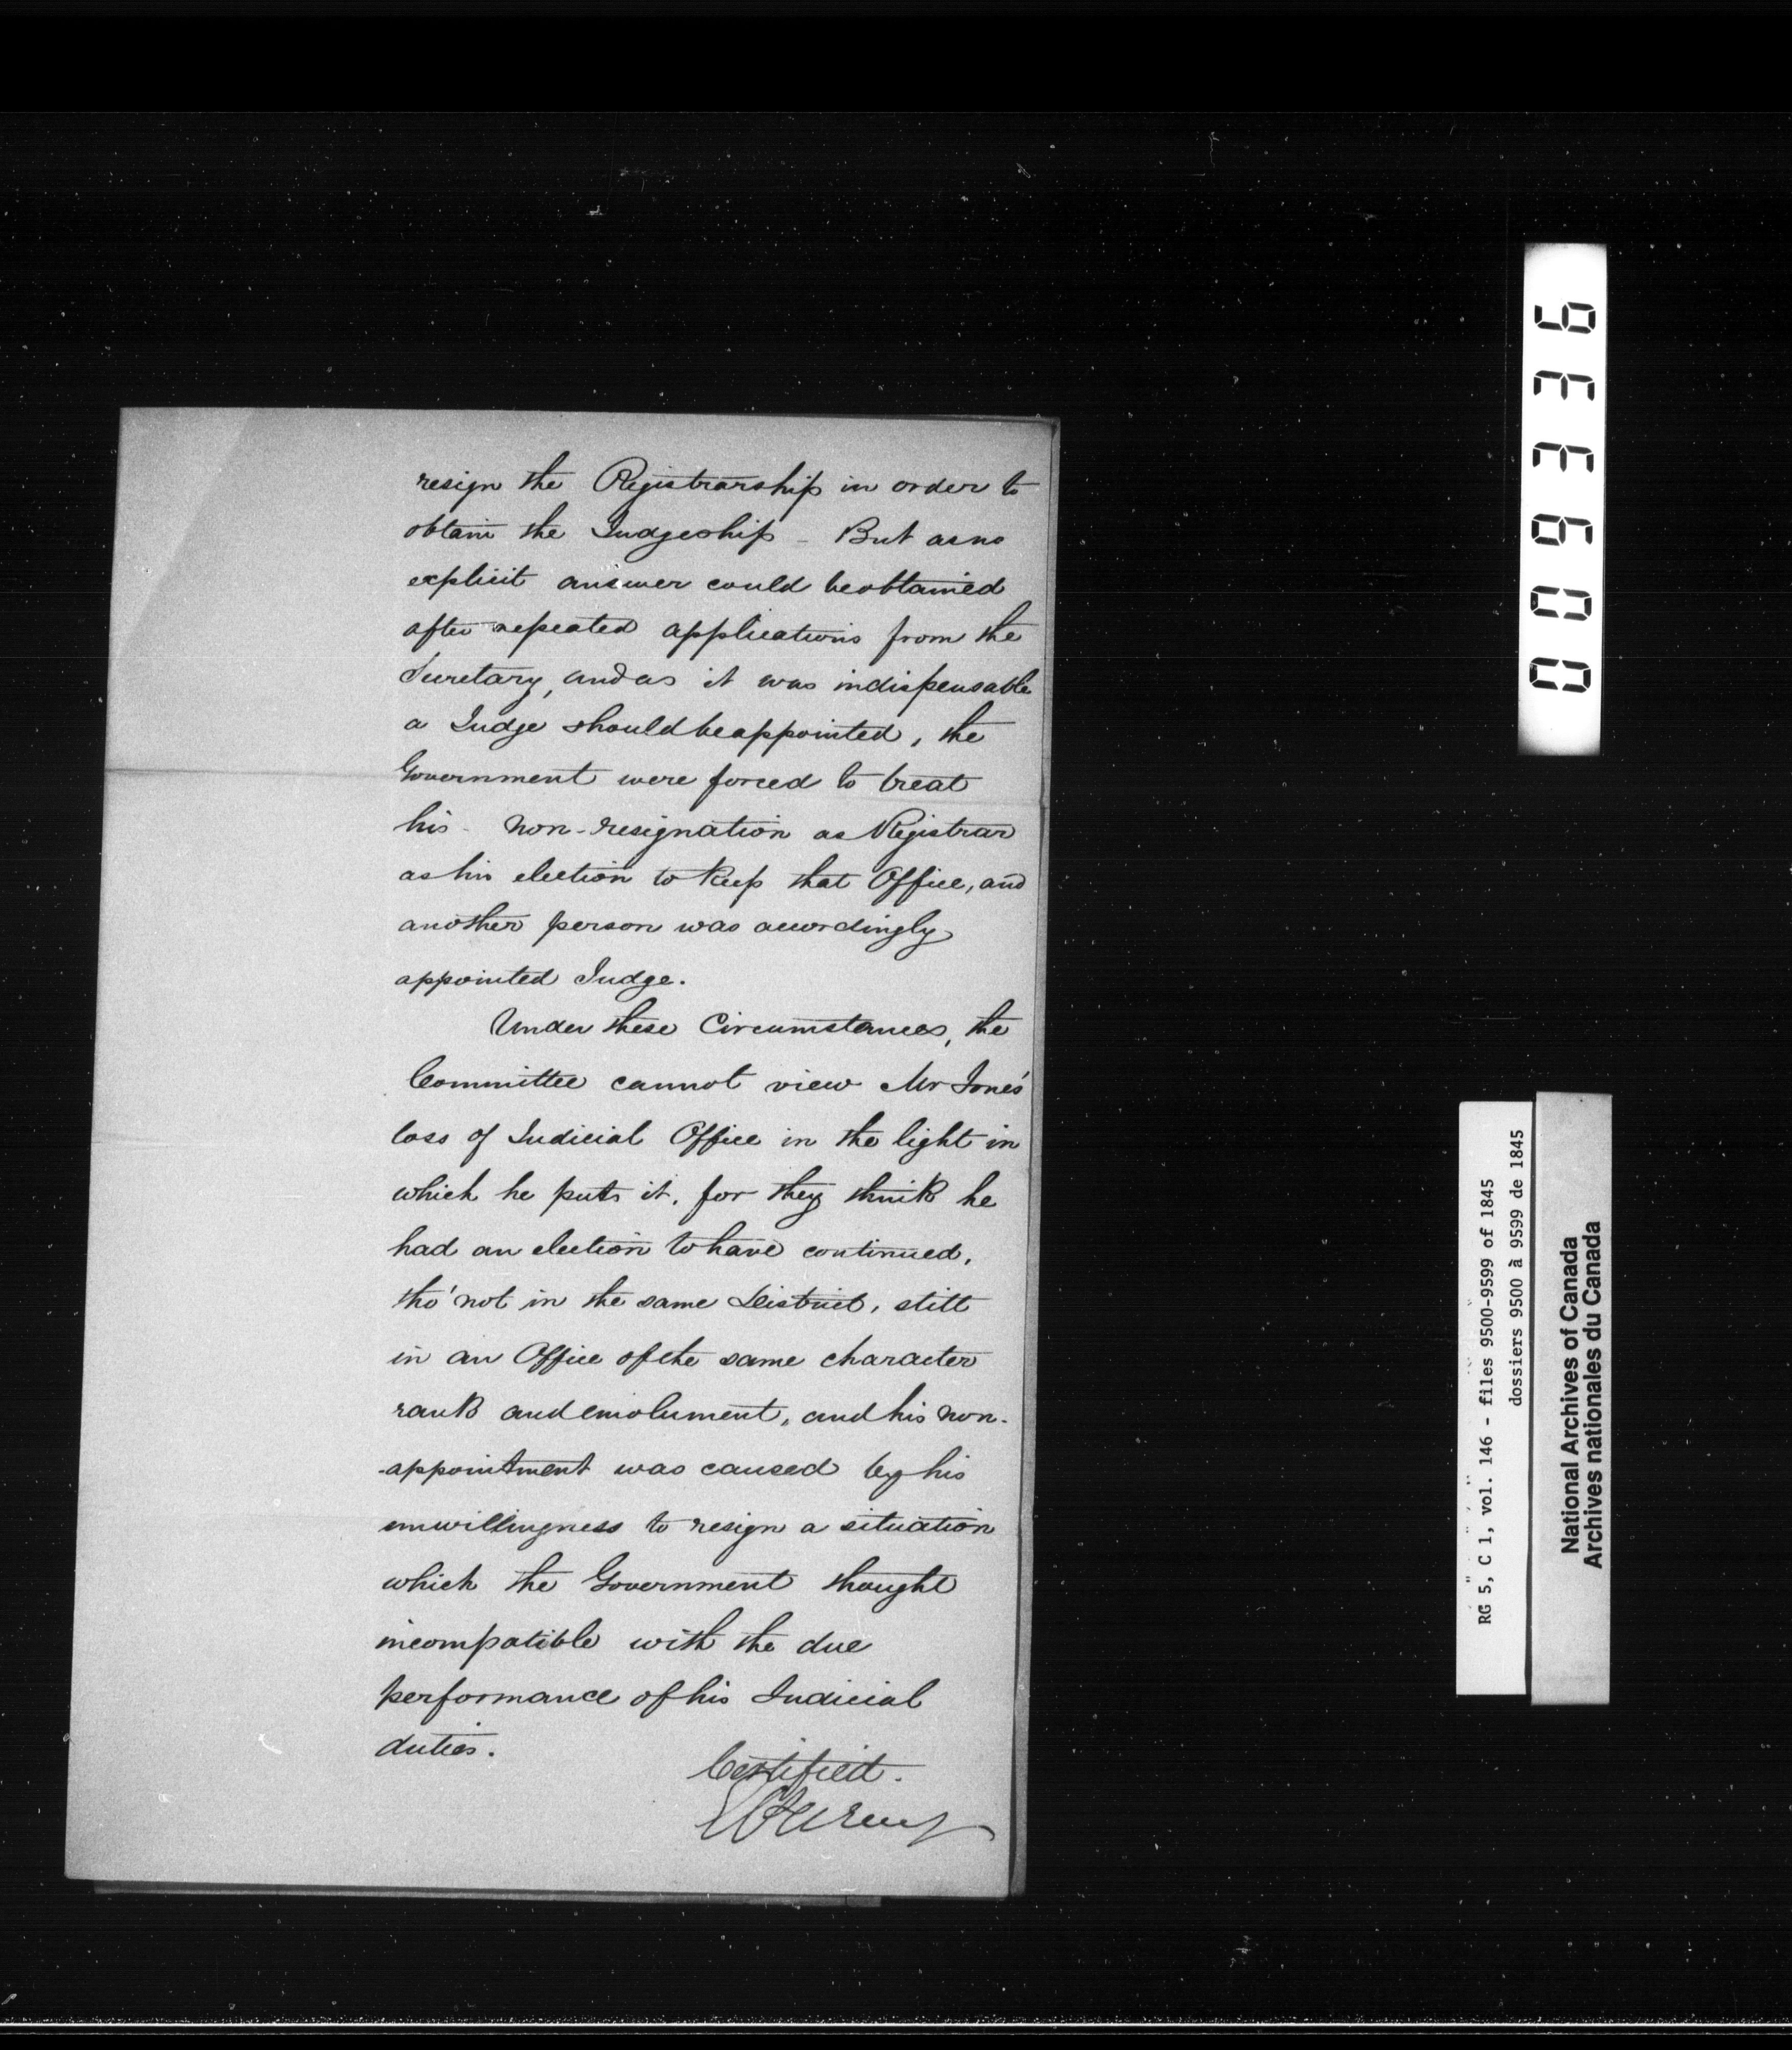 resign the Registrarship in order to
obtain the Judgeship - But as no
explicit answer could be obtained
after repeated applications from the
Secretary, and as it was indispensable
a Judge should be appointed, the
Government were forced to treat
his non-resignation as Registrar
as his election to keep that Office, and
another person was accordingly
appointed Judge.
Under these Circumstances, the
Committee cannot view Mr Jones'
loss of Judicial Office in the light in
which he puts it, for they think he
had an election to have continued,
tho' not in the same District, still
in an Office of the same character
rank and emolument, and his non-
-appointment was caused by his
unwillingness to resign a situation
which the Government thought
incompatible with the due
performance of his Judicial
duties.
Certified.
009336
RG 5, C 1, vol. 146 - files 9500-9599 of 1845
dossiers 9500 à 9599 de 1845
National Archives of Canada
Archives nationales du Canada